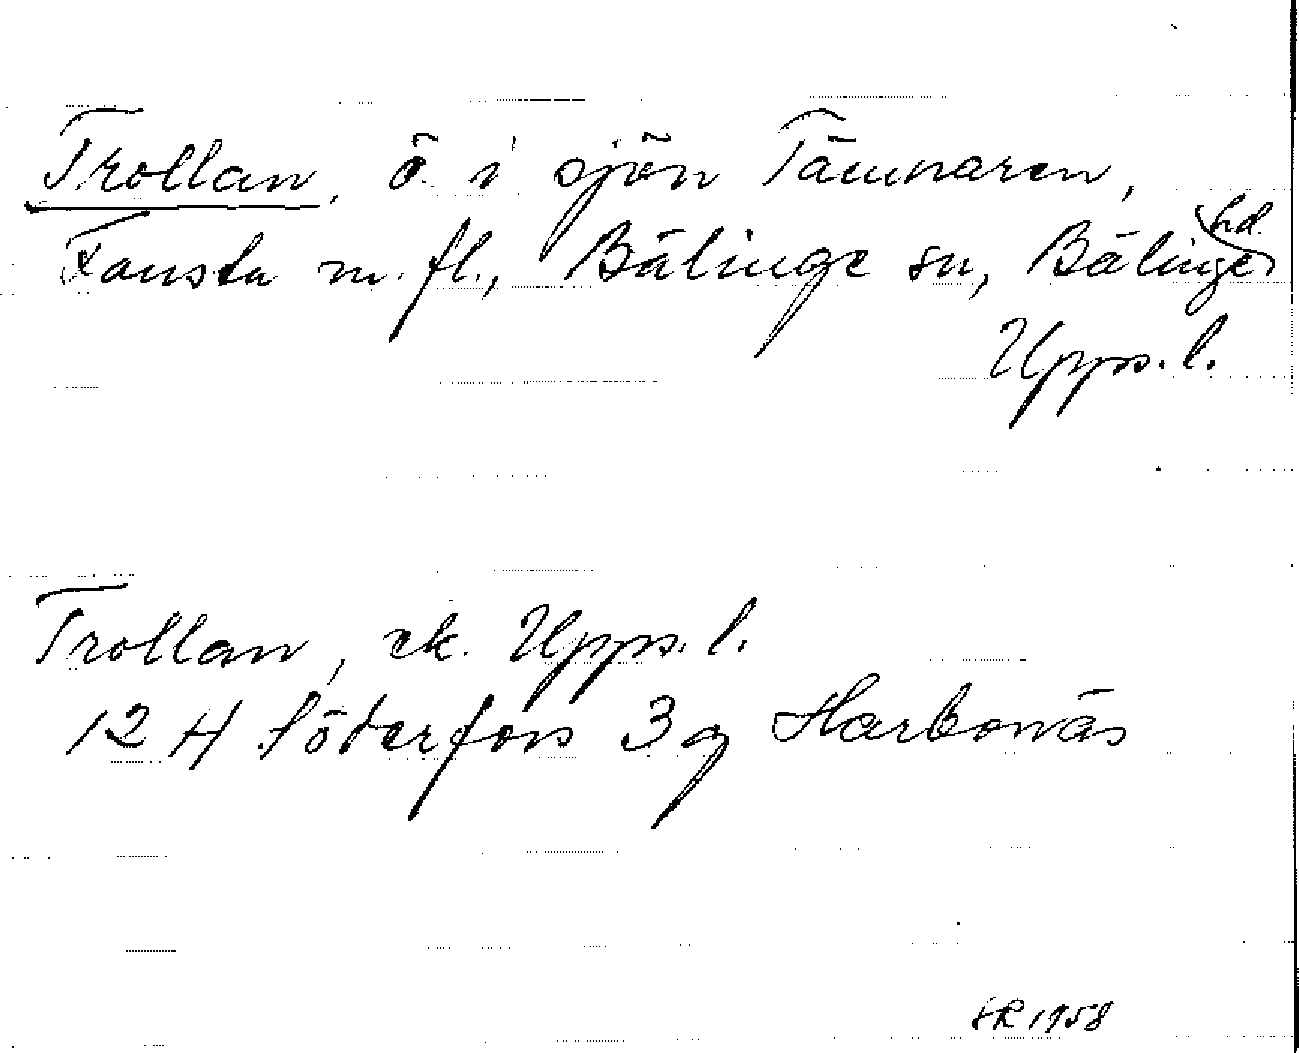 Trollan, ö i sjön Tämnaren,
Fansta m. fl., Bälinge sn, Bälinge hd.
Upps. l.
Trollan, ek. Upps. l.
12 H Söderfors 3 g Harbonäs
SR 1958